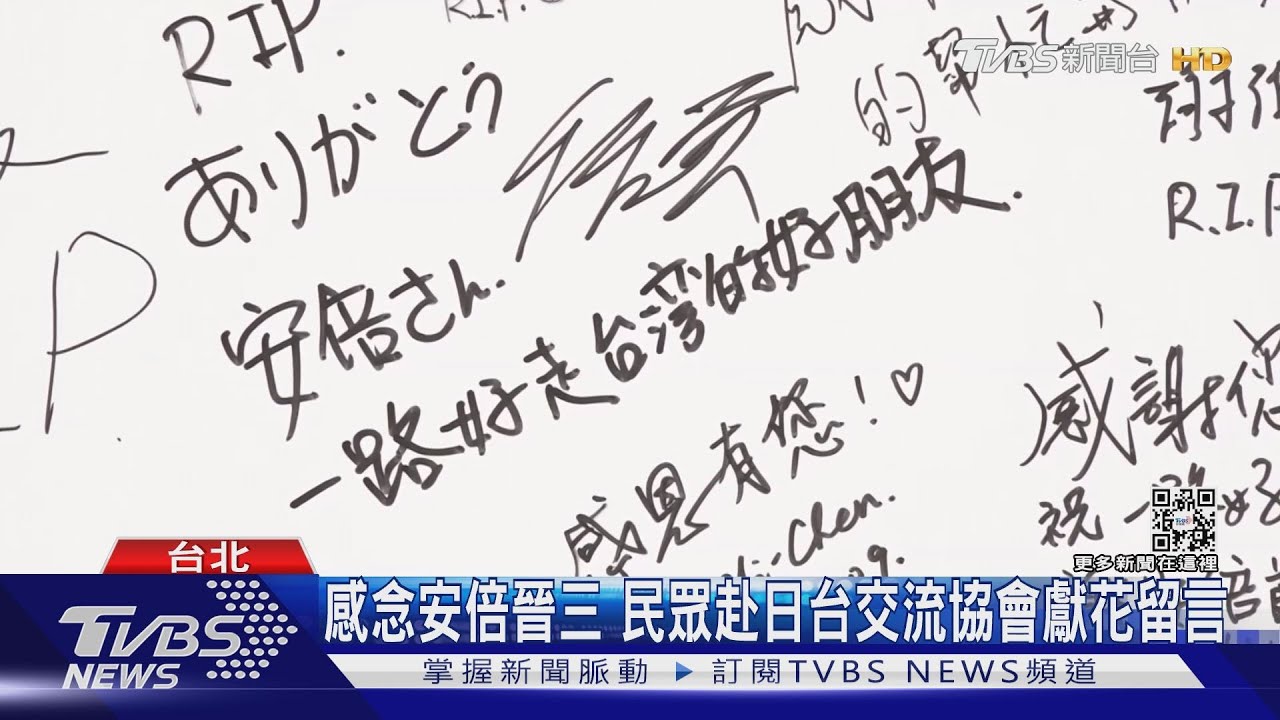 RIP.
R.I.P.
TVBS新聞台 HD
ありがとう
的
R.I.P
安倍さん.
P
一路好走台灣的好朋友.
感謝您
感恩有您!♡
祝一路好
Chen.
09.
更多新聞在這裡
台北
TVBS NEWS
感念安倍晉三 民眾赴日台交流協會獻花留言
掌握新聞脈動 ▶ 訂閱TVBS NEWS頻道